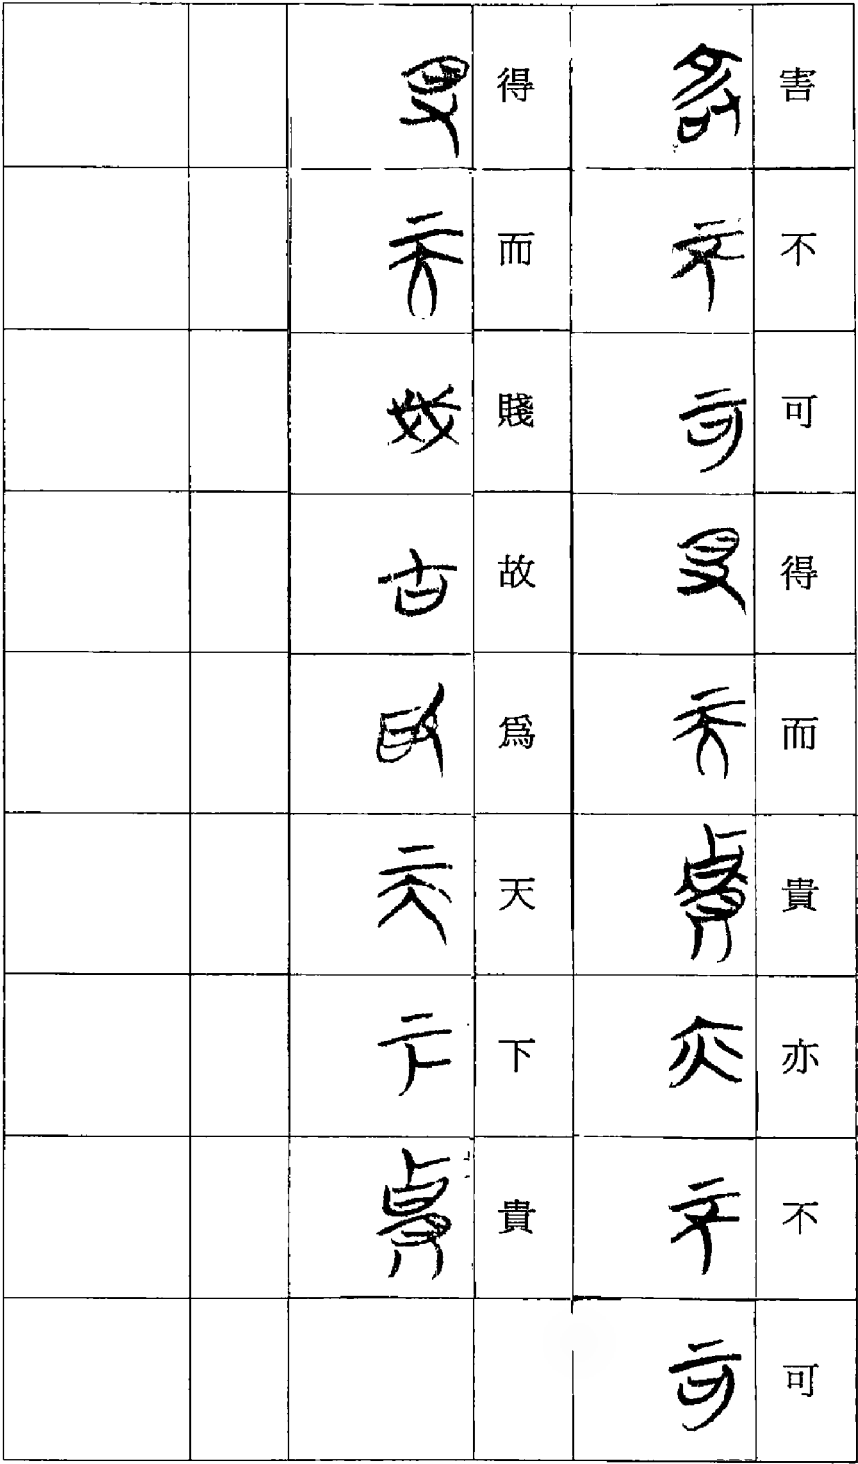 害不可得而貴亦不可
得而賤故爲天下貴